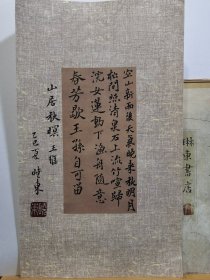 空山新雨後天氣晚来秋明月
松間照清泉石上流竹喧歸
浣女蓮動下漁舟隨意
春芳歇王孫自可留
山居秋暝 王維
乙巳夏 時東
東書店